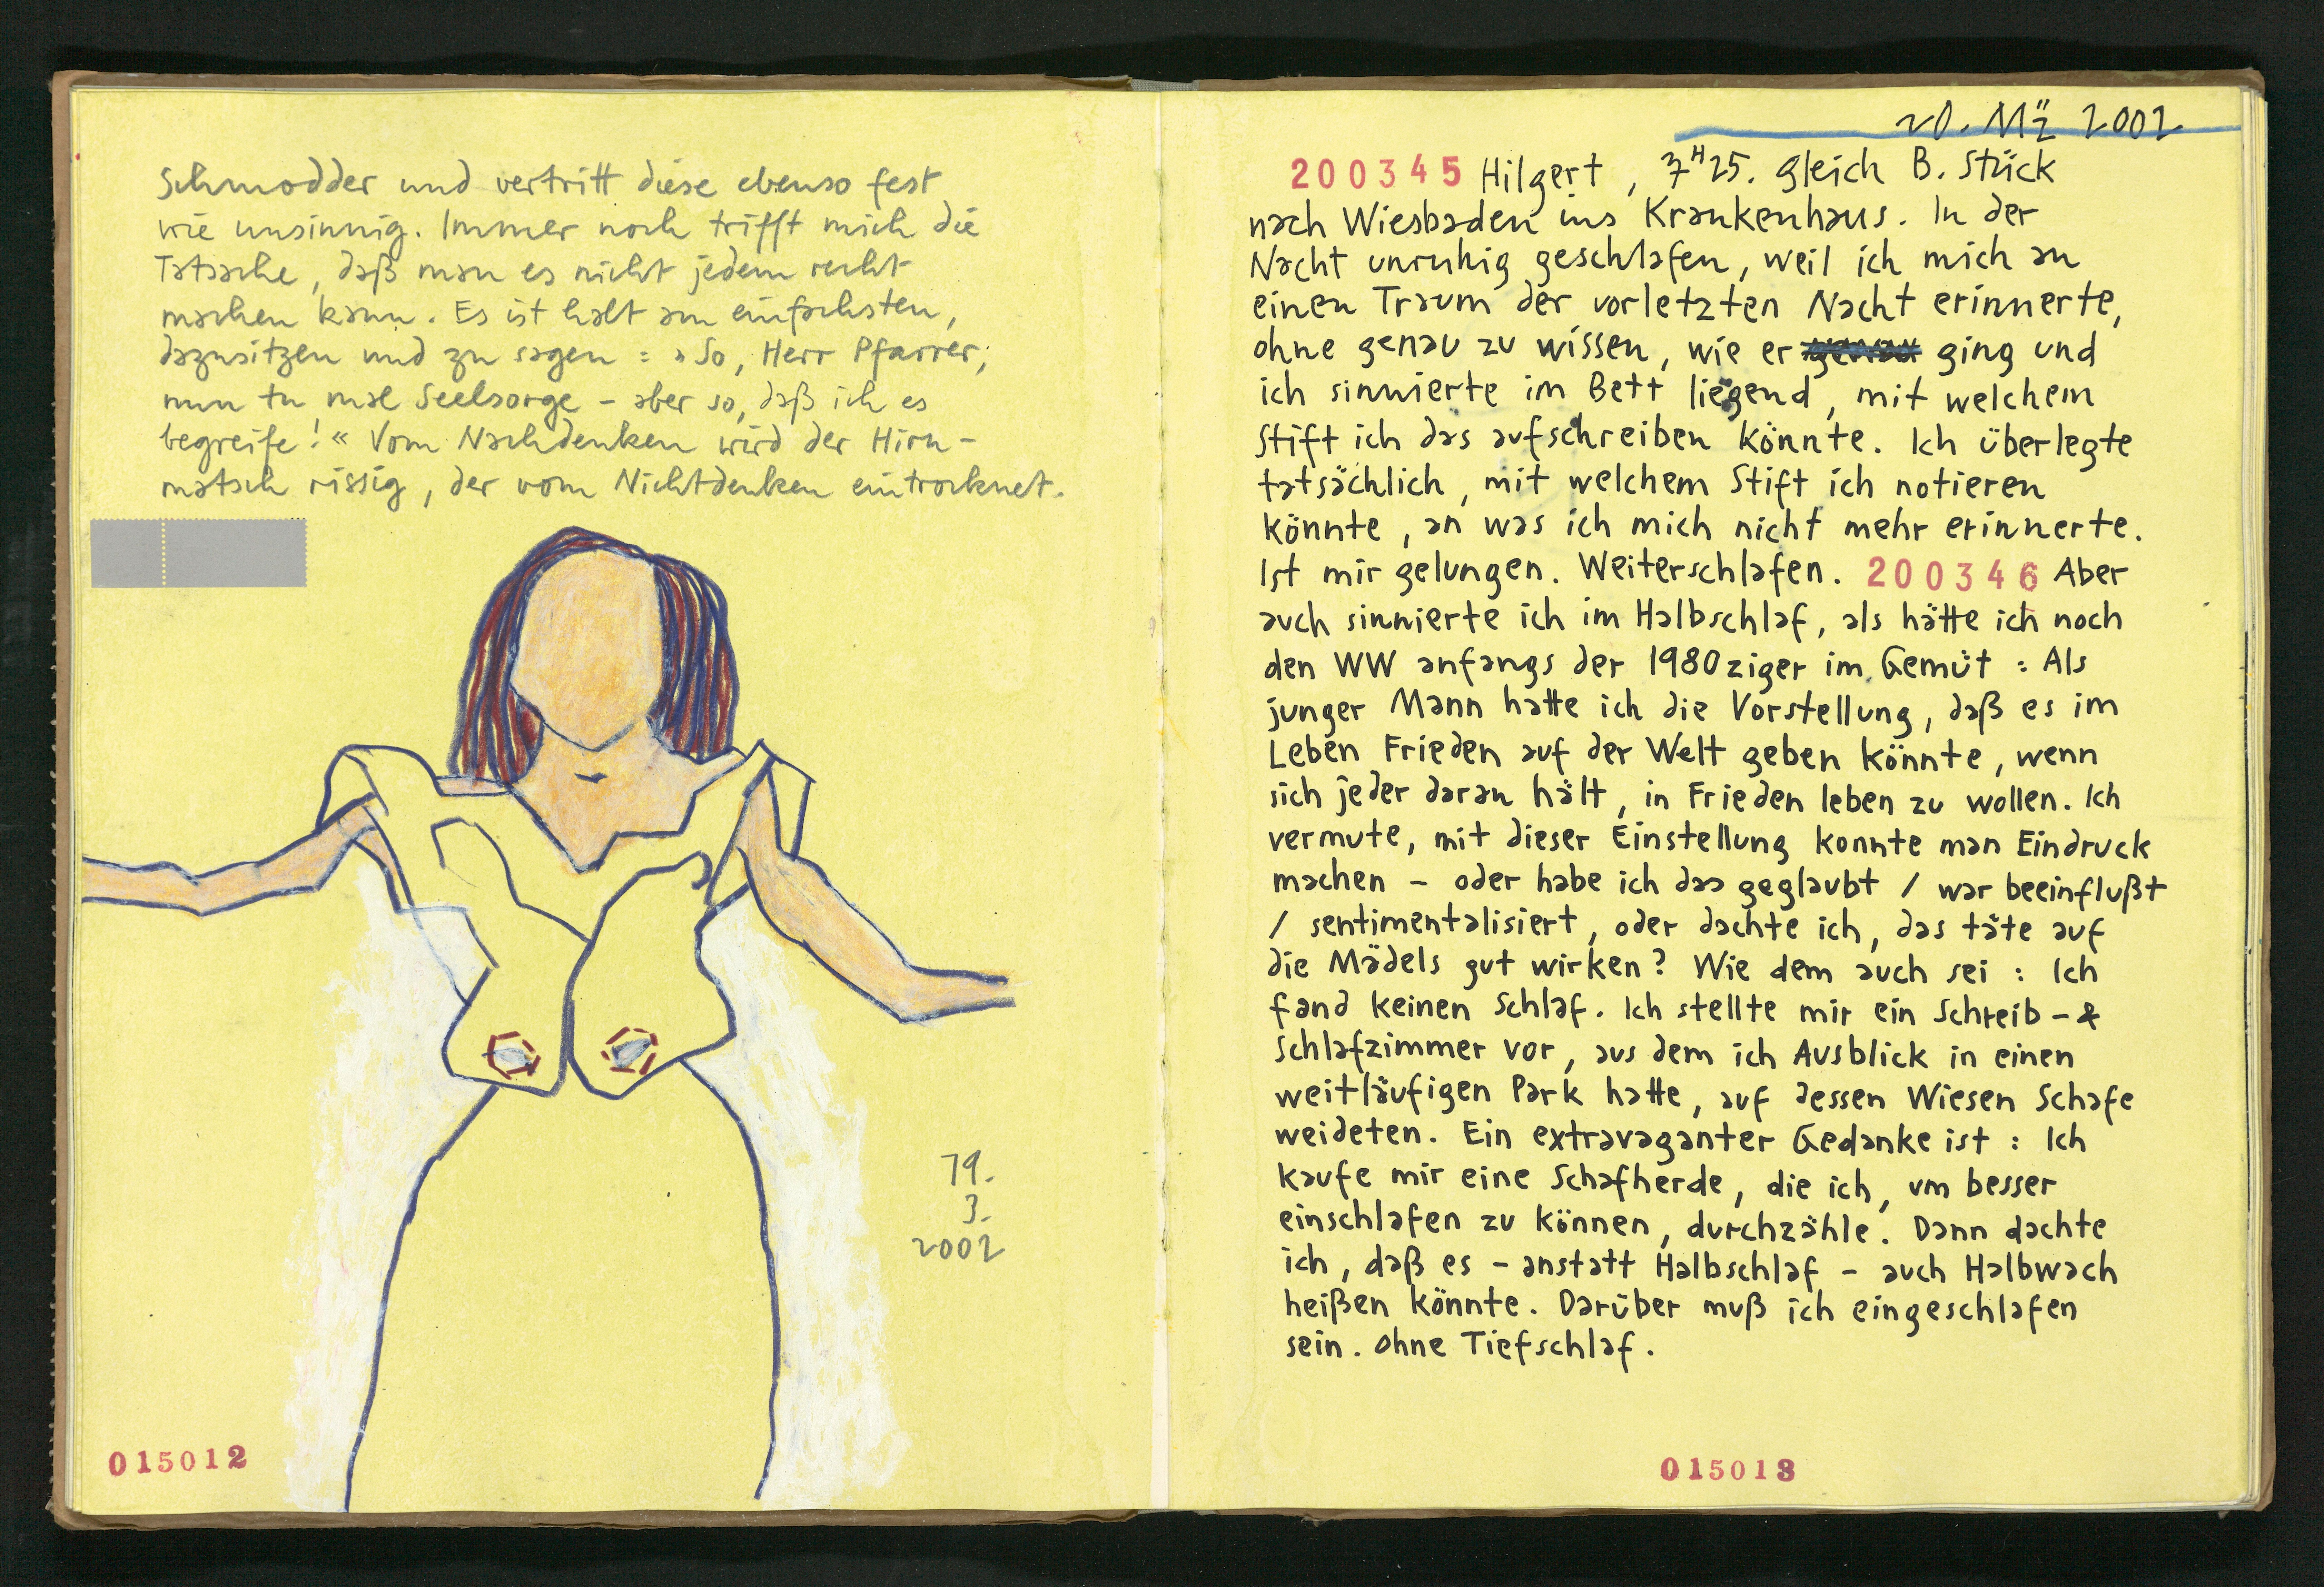 Schmodder und vertritt diese ebenso fest
wie unsinnig. Immer noch trifft mich die
Tatsache, daß man es nicht jedem recht
machen kann. Es ist halt am einfachsten,
dazusitzen und zu sagen : »So, Herr Pfarrer,
nun tu mal Seelsorge – aber so, daß ich es
begreife!« Vom Nachdenken wird der Hirn-
matsch rissig, der vom Nichtdenken eintrocknet.
19.
3.
2002
015012
20. Mä 2002
200345 Hilgert, 7H25. gleich B. Stück
nach Wiesbaden ins Krankenhaus. In der
Nacht unruhig geschlafen, weil ich mich an
einen Traum der vorletzten Nacht erinnerte,
ohne genau zu wissen, wie er ging und
ich sinnierte im Bett liegend, mit welchem
Stift ich das aufschreiben könnte. Ich überlegte
tatsächlich, mit welchem Stift ich notieren
könnte, an was ich mich nicht mehr erinnerte.
Ist mir gelungen. Weiterschlafen. 200346 Aber
auch sinnierte ich im Halbschlaf, als hätte ich noch
den WW anfangs der 1980ziger im Gemüt : Als
junger Mann hatte ich die Vorstellung, daß es im
Leben Frieden auf der Welt geben könnte, wenn
sich jeder daran hält, in Frieden leben zu wollen. Ich
vermute, mit dieser Einstellung konnte man Eindruck
machen – oder habe ich das geglaubt / war beeinflußt
/ sentimentalisiert, oder dachte ich, das täte auf
die Mädels gut wirken? Wie dem auch sei : Ich
fand keinen Schlaf. Ich stellte mir ein Schreib- &
Schlafzimmer vor, aus dem ich Ausblick in einen
weitläufigen Park hatte, auf dessen Wiesen Schafe
weideten. Ein extravaganter Gedanke ist : Ich
kaufe mir eine Schafherde, die ich, um besser
einschlafen zu können, durchzähle. Dann dachte
ich, daß es – anstatt Halbschlaf – auch Halbwach
heißen könnte. Darüber muß ich eingeschlafen
sein. Ohne Tiefschlaf.
015013